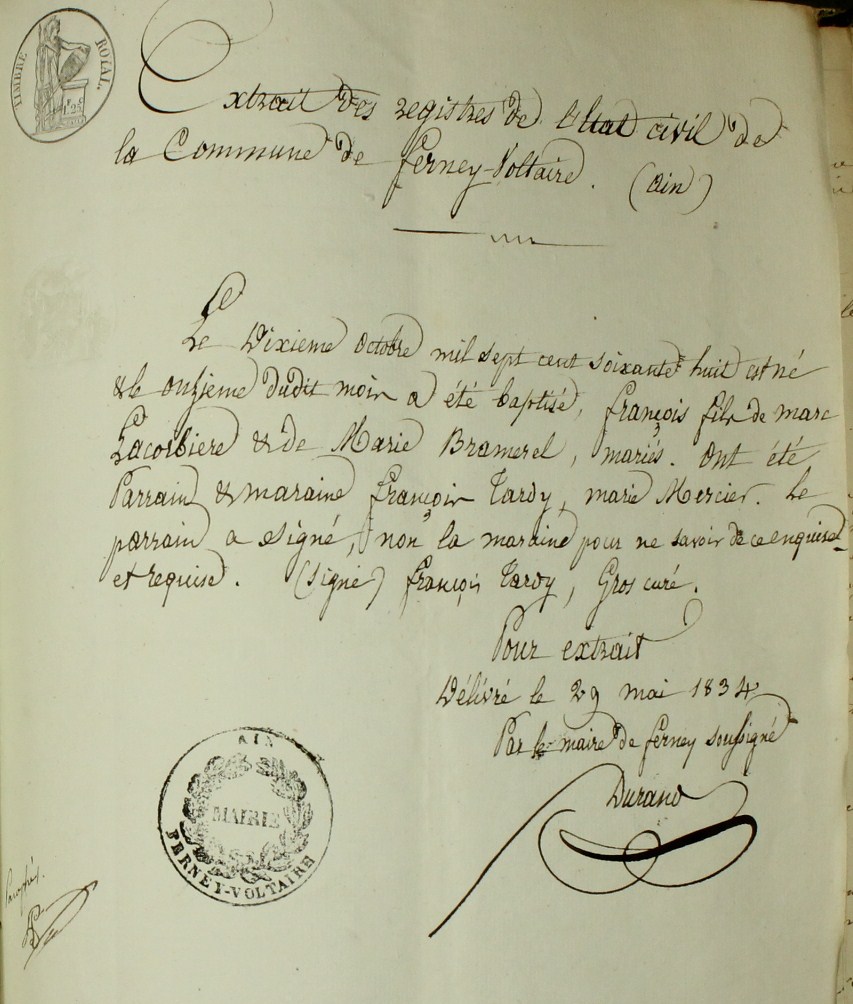 TIMBRE ROYAL.
Extrait des registres de l'état civil de
la Commune de ferney-Voltaire. (Ain)
Le Dixieme Octobre mil sept cent soixante huit est né
& le onzieme dudit mois a été baptisé, françois fils de marc
Lacorbiere & de Marie Bramerel, mariés. Ont été
Parrain & maraine françois Tardy, marie Mercier. Le
parrain a signé, non la maraine pour ne savoir de ce enquise
et requise. (Signé) françois Tardy, Gros curé.
Pour extrait
Délivré le 29 mai 1834
Par le maire de ferney soussigné
Durand
AIN
MAIRIE
FERNEY-VOLTAIRE